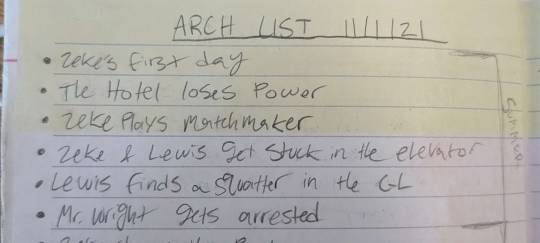 ARCH LIST 11/1/21
• Zeke's first day
• The Hotel loses Power
• Zeke Plays matchmaker
• Zeke & Lewis get stuck in the elevator
• Lewis finds a squatter in the GL
• Mr. Wright gets arrested